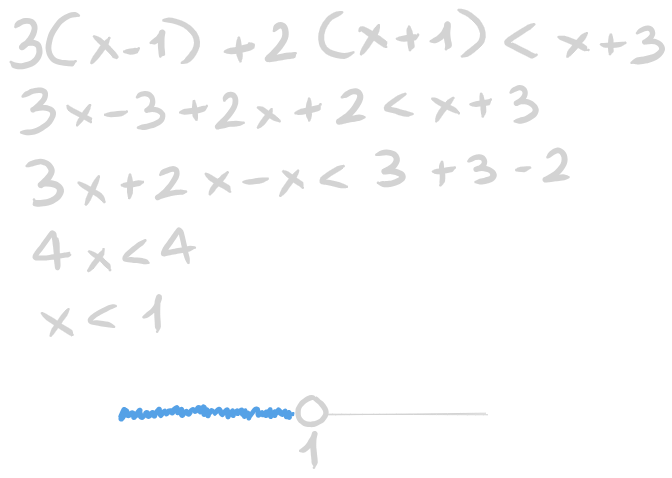 3(x-1) +2 (x+1) < x+3
3x-3+2x+2 < x+3
3x+2x-x < 3+3-2
4x<4
x < 1
1